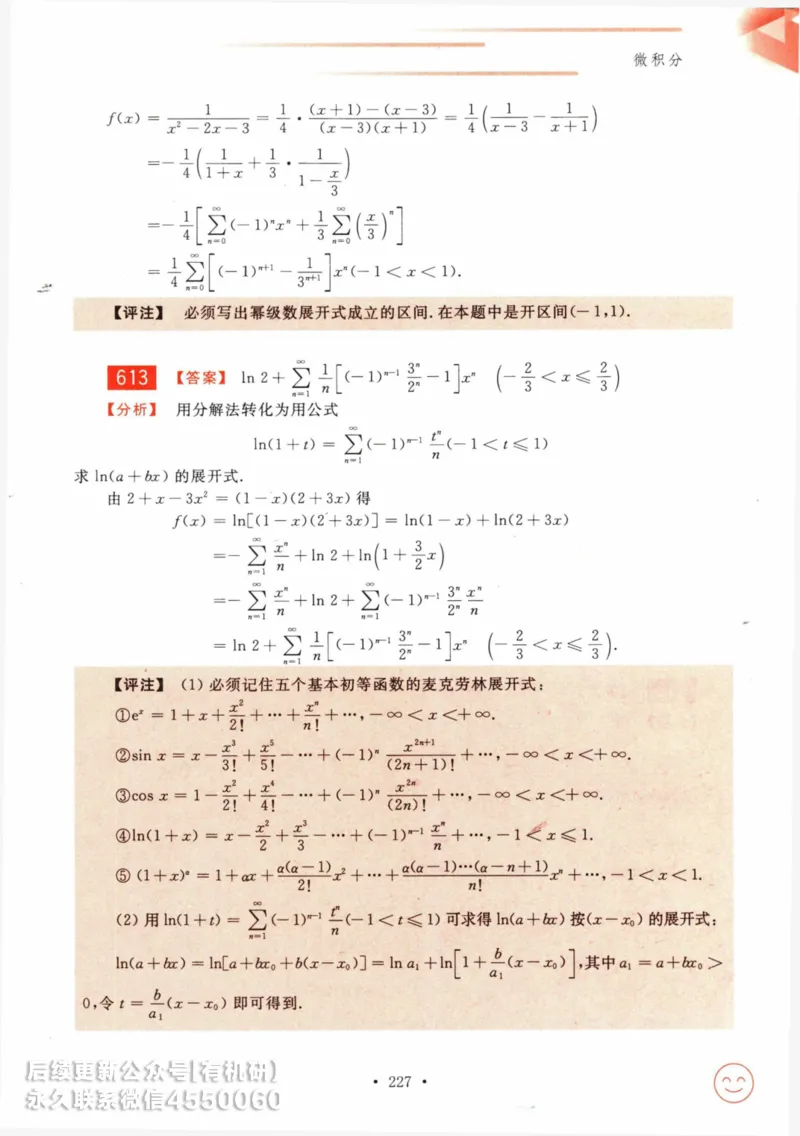 微积分
f(x) = 1/(x² − 2x − 3) = 1/4 · ((x+1)−(x−3))/((x−3)(x+1)) = 1/4 (1/(x−3) − 1/(x+1))
= −1/4 (1/(1+x) + 1/3 · 1/(1 − x/3))
= −1/4 [∑_{n=0}^{∞} (−1)ⁿxⁿ + 1/3 ∑_{n=0}^{∞} (x/3)ⁿ]
= 1/4 ∑_{n=0}^{∞} [(−1)^{n+1} − 1/3^{n+1}] xⁿ (−1 < x < 1).
【评注】 必须写出幂级数展开式成立的区间.在本题中是开区间(−1,1).
613 【答案】 ln 2 + ∑_{n=1}^{∞} 1/n [(−1)^{n−1} 3ⁿ/2ⁿ − 1] xⁿ (−2/3 < x ⩽ 2/3)
【分析】 用分解法转化为用公式
ln(1+t) = ∑_{n=1}^{∞} (−1)^{n−1} tⁿ/n (−1 < t ⩽ 1)
求 ln(a+bx) 的展开式.
由 2 + x − 3x² = (1−x)(2+3x) 得
f(x) = ln[(1−x)(2+3x)] = ln(1−x) + ln(2+3x)
= − ∑_{n=1}^{∞} xⁿ/n + ln 2 + ln(1 + 3/2 x)
= − ∑_{n=1}^{∞} xⁿ/n + ln 2 + ∑_{n=1}^{∞} (−1)^{n−1} 3ⁿ/2ⁿ xⁿ/n
= ln 2 + ∑_{n=1}^{∞} 1/n [(−1)^{n−1} 3ⁿ/2ⁿ − 1] xⁿ (−2/3 < x ⩽ 2/3).
【评注】 (1) 必须记住五个基本初等函数的麦克劳林展开式:
①eˣ = 1 + x + x²/2! + ⋯ + xⁿ/n! + ⋯, −∞ < x < +∞.
②sin x = x − x³/3! + x⁵/5! − ⋯ + (−1)ⁿ x^{2n+1}/(2n+1)! + ⋯, −∞ < x < +∞.
③cos x = 1 − x²/2! + x⁴/4! − ⋯ + (−1)ⁿ x^{2n}/(2n)! + ⋯, −∞ < x < +∞.
④ln(1+x) = x − x²/2 + x³/3 − ⋯ + (−1)^{n−1} xⁿ/n + ⋯, −1 < x ⩽ 1.
⑤ (1+x)^α = 1 + αx + α(α−1)/2! x² + ⋯ + α(α−1)⋯(α−n+1)/n! xⁿ + ⋯, −1 < x < 1.
(2) 用 ln(1+t) = ∑_{n=1}^{∞} (−1)^{n−1} tⁿ/n (−1 < t ⩽ 1) 可求得 ln(a+bx) 按(x−x₀) 的展开式:
ln(a+bx) = ln[a+bx₀+b(x−x₀)] = ln a₁ + ln[1 + b/a₁ (x−x₀)],其中 a₁ = a+bx₀ >
0,令 t = b/a₁ (x−x₀) 即可得到.
后续更新公众号[有机研]
永久联系微信4550060
• 227 •